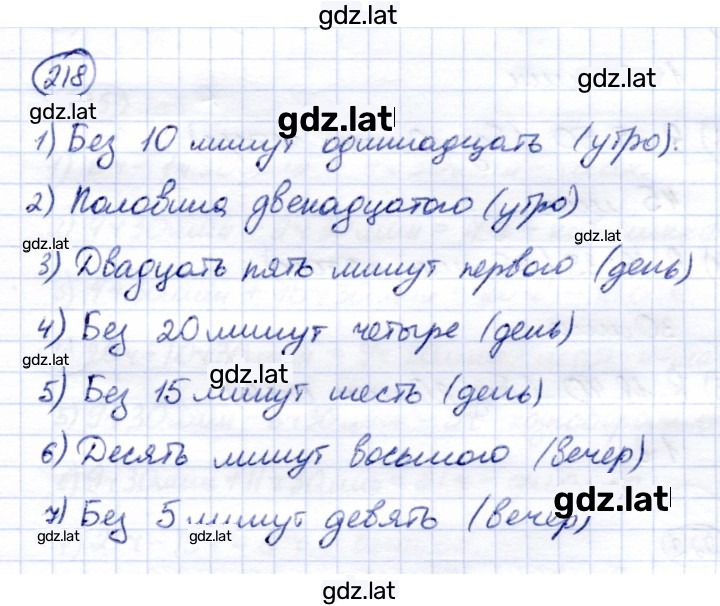 gdz.lat
218
gdz.lat
gdz.lat
gdz.lat
1) Без 10 минут одиннадцать (утро).
2) Половина двенадцатого (утро)
gdz.lat
gdz.lat
3) Двадцать пять минут первого (день)
4) Без 20 минут четыре (день)
gdz.lat
gdz.lat
5) Без 15 минут шесть (день)
6) Десять минут восьмого (вечер)
gdz.lat
7) Без 5 минут девять (вечер)
gdz.lat
gdz.lat
gdz.lat